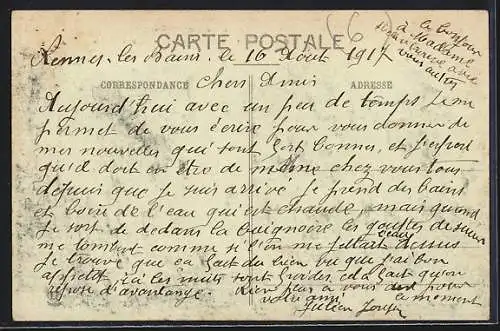 CARTE POSTALE
CORRESPONDANCE
ADRESSE
66
le bonjour
à Madame
Rennes-les-Bains, le 16 Août 1917
Chers Amis
Aujourd'hui avec un peu de temps je me
permet de vous écrire pour vous donner de
mes nouvelles qui sont fort bonnes, et j'espère
qu'il doit en être de même chez vous tous
depuis que je suis arrivé je prend des bains
et boire de l'eau qui est chaude, mais quand
je sort de dedans la baignoire les gouttes de sueur
me tombent comme si l'on me jettait de l'eau dessus
je trouve que ça fait du bien vu que j'ai bon
appétit là les nuits sont froides cela fait qu'on
repose d'avantange. Rien plus à vous dire pour
le moment
votre ami
Julien